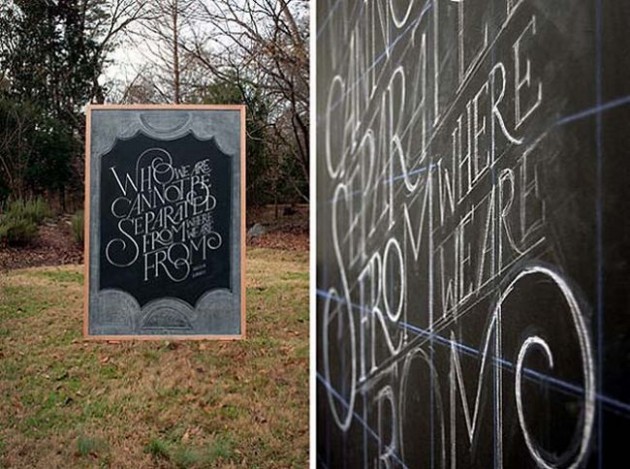 WHO WE ARE
CANNOT BE
SEPARATED
FROM WHERE
WE ARE
FROM
CANNOT
SEPARAT
FROM WHERE
WE ARE
FROM